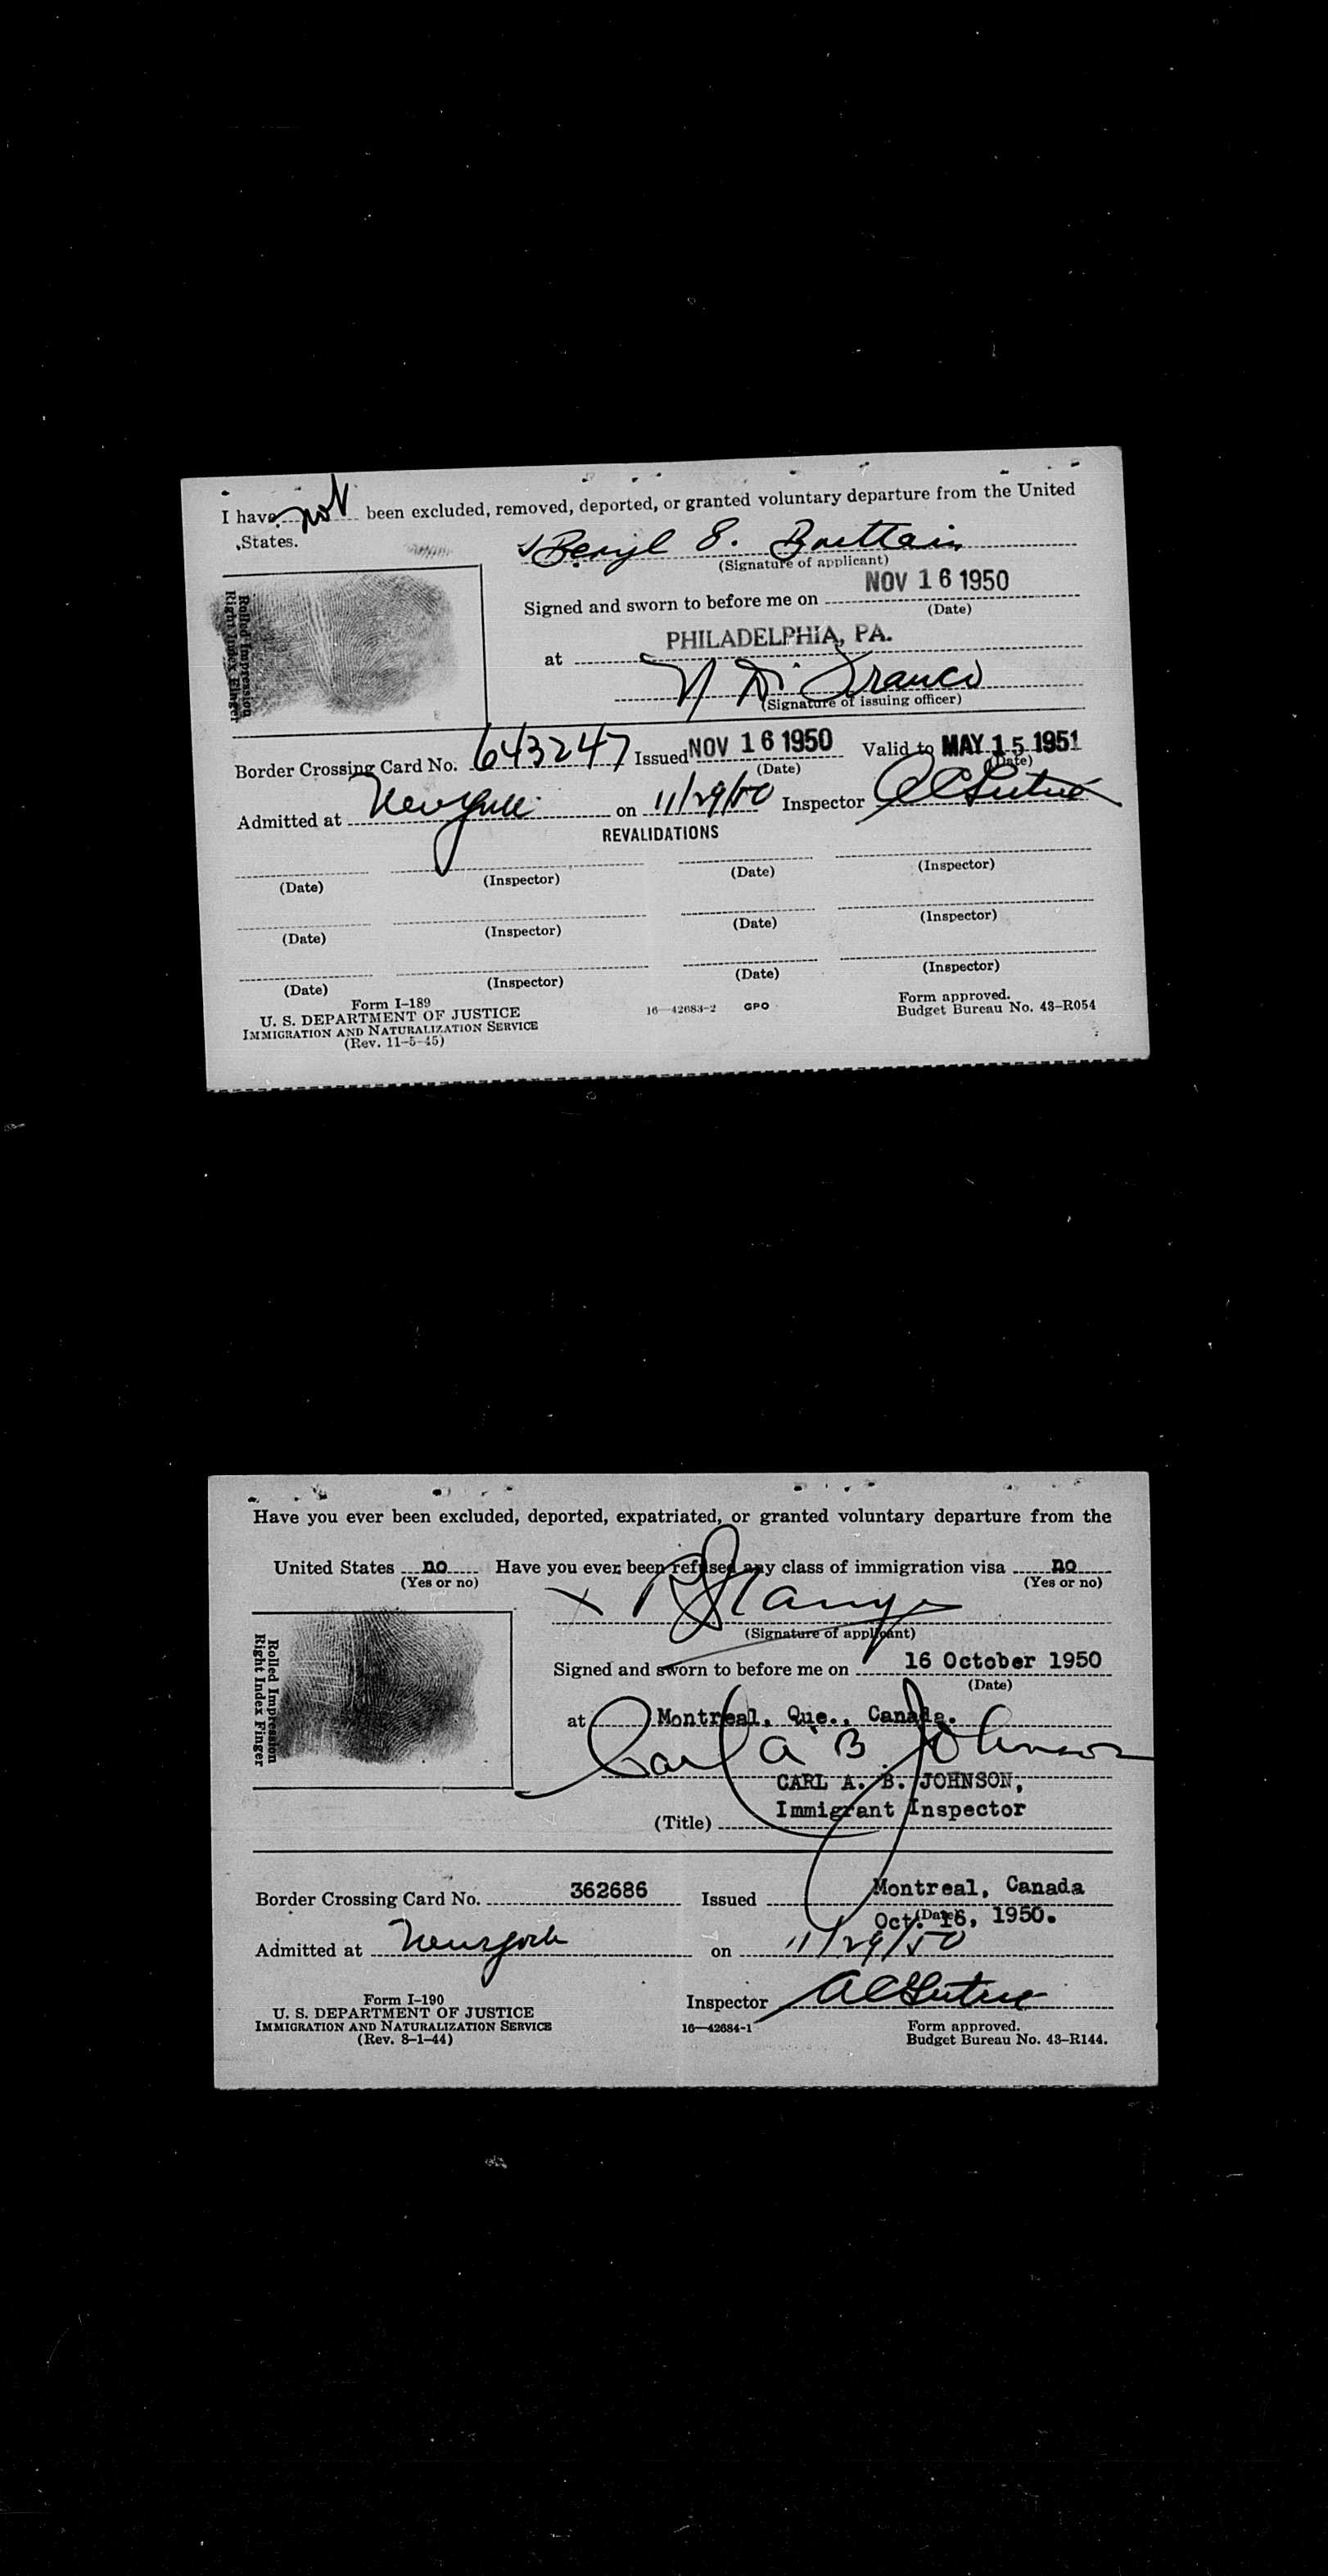 I have not been excluded, removed, deported, or granted voluntary departure from the United
States.
Beryl E. Brittain
(Signature of applicant)
Signed and sworn to before me on NOV 16 1950
(Date)
at PHILADELPHIA, PA.
N Di Franco
(Signature of issuing officer)
Rolled Impression
Right Index Finger
Border Crossing Card No. 643247 Issued NOV 16 1950 Valid to MAY 15 1951
(Date) (Date)
Admitted at New York on 11/29/50 Inspector
REVALIDATIONS
(Date) (Inspector) (Date) (Inspector)
(Date) (Inspector) (Date) (Inspector)
(Date) (Inspector) (Date) (Inspector)
Form I-189
U. S. DEPARTMENT OF JUSTICE
IMMIGRATION AND NATURALIZATION SERVICE
(Rev. 11-5-45)
16—42683-2 GPO
Form approved.
Budget Bureau No. 43-R054
Have you ever been excluded, deported, expatriated, or granted voluntary departure from the
United States no Have you ever been refused any class of immigration visa no
(Yes or no) (Yes or no)
X
(Signature of applicant)
Signed and sworn to before me on 16 October 1950
(Date)
at Montreal, Que., Canada.
Carl A B Johnson
CARL A. B. JOHNSON,
(Title) Immigrant Inspector
Rolled Impression
Right Index Finger
Border Crossing Card No. 362686 Issued Montreal, Canada
(Date)
Oct. 16, 1950.
Admitted at New York on 11/29/50
Inspector
Form I-190
U. S. DEPARTMENT OF JUSTICE
IMMIGRATION AND NATURALIZATION SERVICE
(Rev. 8-1-44)
16—42684-1
Form approved.
Budget Bureau No. 43-R144.